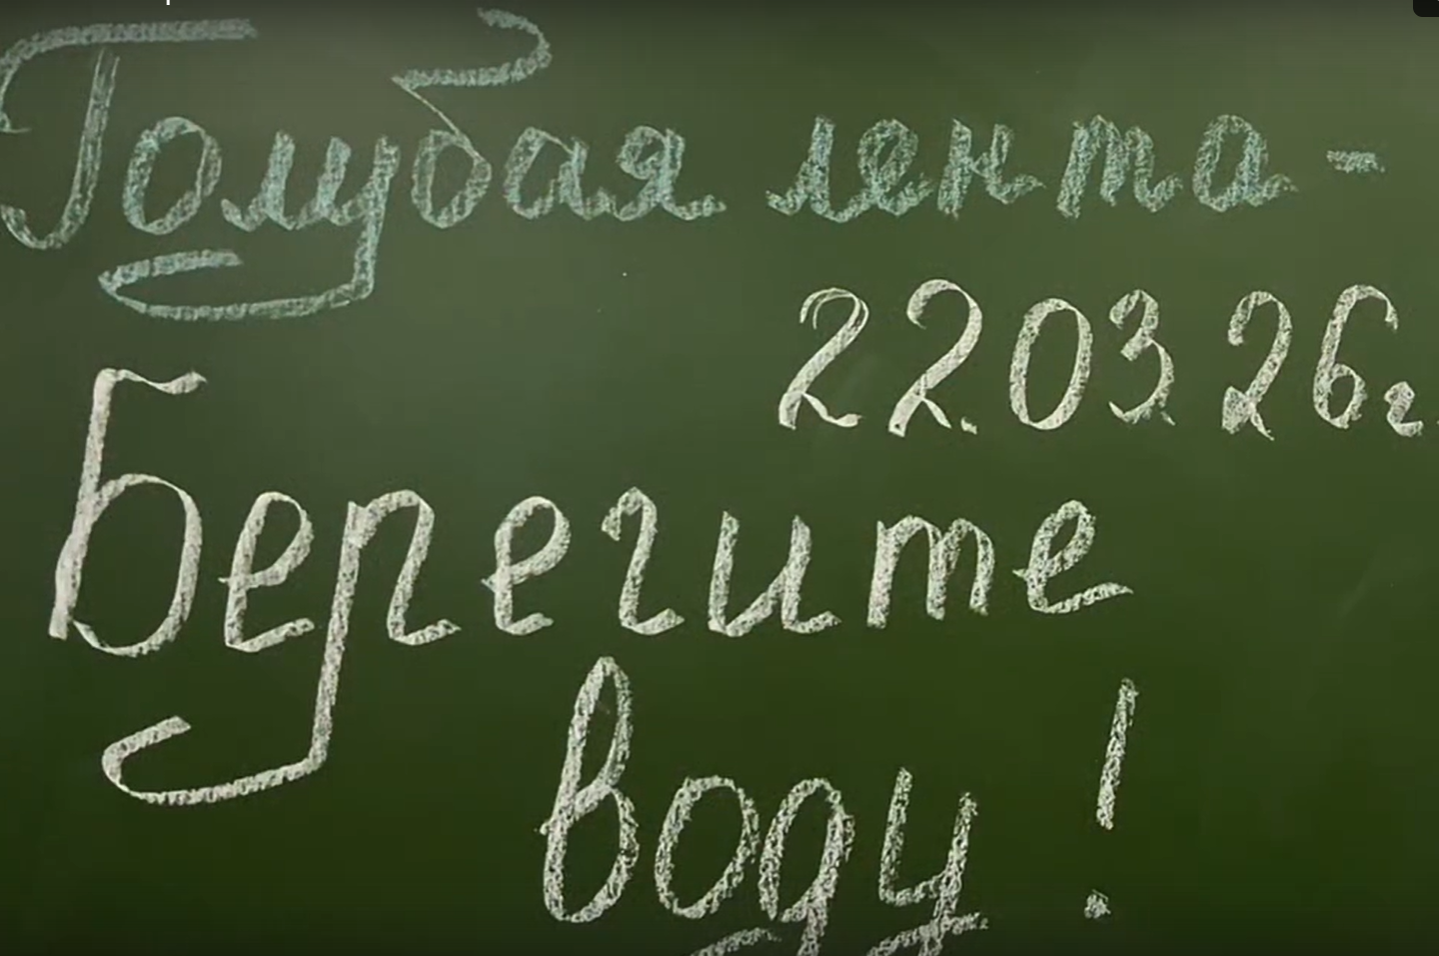 Голубая лента -
22.03 26г.
Берегите
воду!